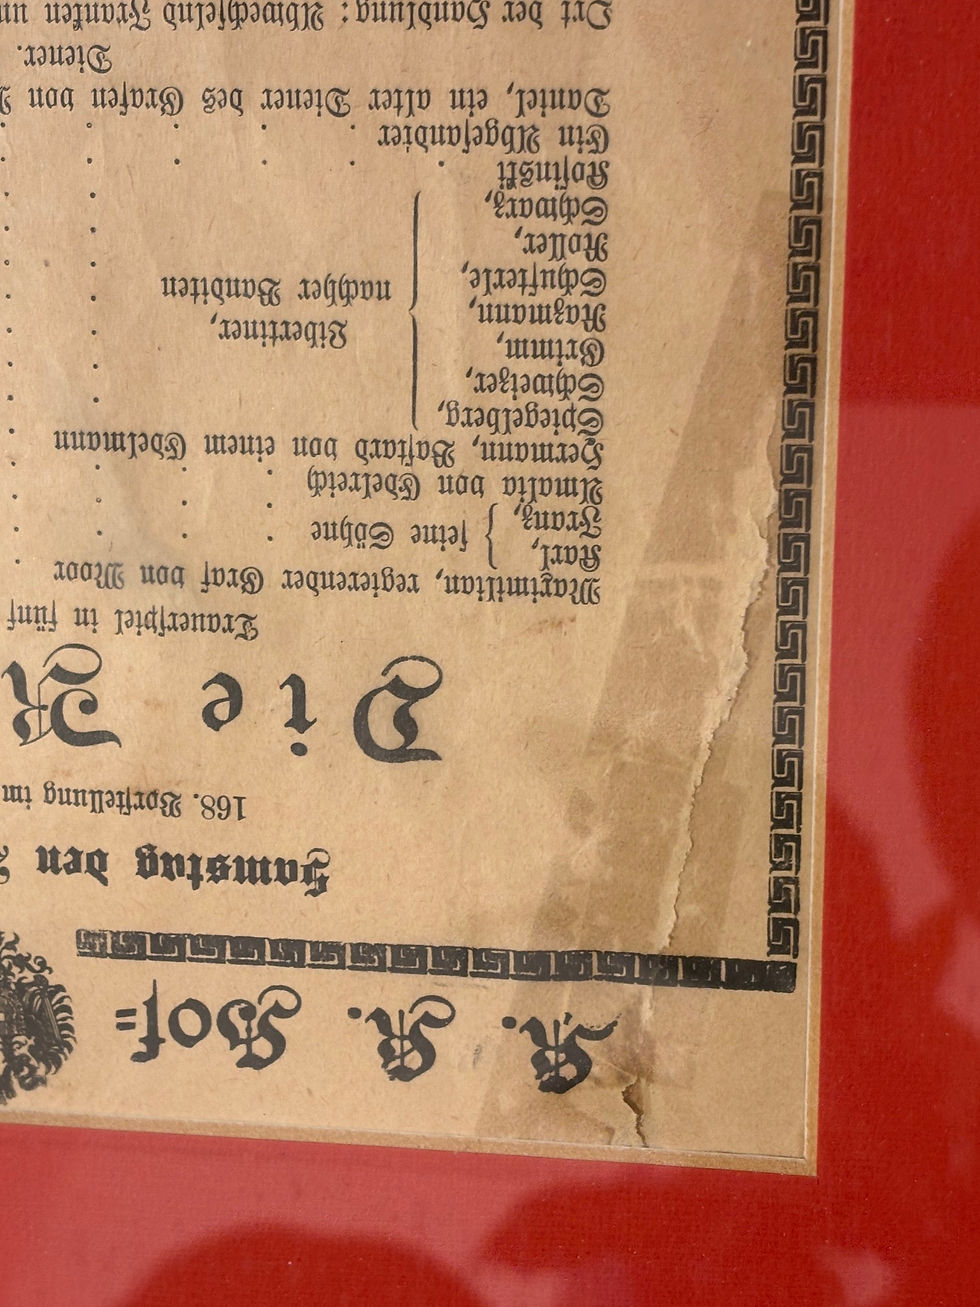 K. K. Hof=
Samstag den
168. Vorstellung im
Die R
Trauerspiel in fünf
Maximilian, regierender Graf von Moor
Karl,
Franz,
seine Söhne
Amalia von Edelreich
Hermann, Bastard von einem Edelmann
Spiegelberg,
Schweizer,
Grimm,
Razmann,
Schufterle,
Roller,
Schwarz,
Libertiner,
nachher Banditen
Kosinsky
Ein Abgesandter
Daniel, ein alter Diener des Grafen von
Diener.
Ort der Handlung: Abwechselnd Franken un